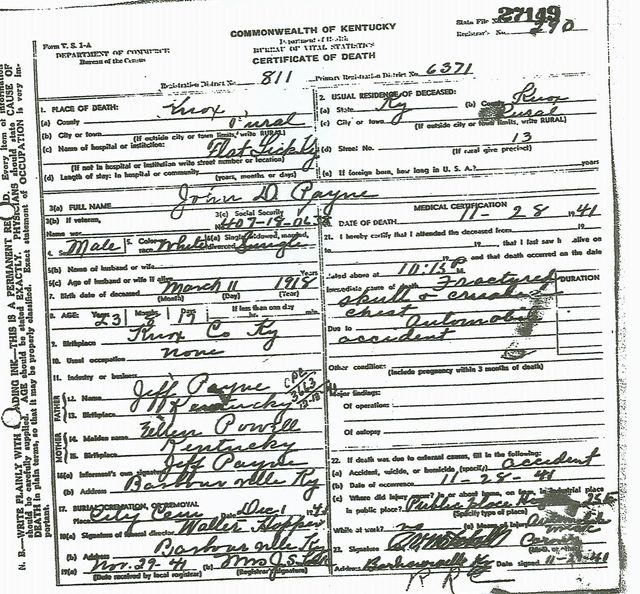 COMMONWEALTH OF KENTUCKY
Department of Health
BUREAU OF VITAL STATISTICS
CERTIFICATE OF DEATH
Form V. S. 1-A
DEPARTMENT OF COMMERCE
Bureau of the Census
State File No. 27149
Registrar's No. 290
Registration District No. 811
Primary Registration District No. 6371
1. PLACE OF DEATH:
(a) County Knox
(b) City or town Rural
(If outside city or town limits, write RURAL)
(c) Name of hospital or institution:
Flat Lick Ky
(If not in hospital or institution write street number or location)
(d) Length of stay: In hospital or community
(years, months or days)
2. USUAL RESIDENCE OF DECEASED:
(a) State Ky (b) County Knox
(c) City or town Rural
(If outside city or town limits, write RURAL)
(d) Street No. 13
(If rural give precinct)
(e) If foreign born, how long in U. S. A.? years
3(a) FULL NAME John D. Payne
3(b) If veteran,
Name war
3(c) Social Security
No.
4. Male 5. Color race White 6(a) Single, widowed, married, divorced Single
6(b) Name of husband or wife
6(c) Age of husband or wife if alive Years
7. Birth date of deceased March 11 1918
(Month) (Day) (Year)
8. AGE: Years Months Days If less than one day
23 8 17 hr. min.
9. Birthplace Knox Co Ky
10. Usual occupation none
11. Industry or business
FATHER
12. Name Jeff Payne
13. Birthplace Kentucky
MOTHER
14. Maiden name Ellen Powell
15. Birthplace Kentucky
16(a) Informant's own signature Jeff Payne
(b) Address Barbourville Ky
17. BURIAL, CREMATION, OR REMOVAL
Place City Cem Date Dec 1 41
18(a) Signature of funeral director Walter Hopper
(b) Address Barbourville Ky
19(a) Nov. 29-41 (b) Mrs J. S.
(Date received by local registrar) (Registrar's signature)
MEDICAL CERTIFICATION
20. DATE OF DEATH 11-28 1941
21. I hereby certify that I attended the deceased from
19 to 19, that I last saw h alive on
19, and that death occurred on the date
stated above at 10:15 P M.
DURATION
Immediate cause of death Fractured
skull & crushed
chest
Due to Automobile
accident
Other condition:
(Include pregnancy within 3 months of death)
Major findings:
Of operations:
Of autopsy
22. If death was due to external causes, fill in the following:
(a) Accident, suicide, or homicide (specify) accident
(b) Date of occurrence 11-28-41
(c) Where did injury occur? in or about home, on farm, industrial place
in public place? Public Place
(Specify type of place)
While at work? no (e) Means of injury
23. Signature Coroner
Address Barbourville Ky Date signed 11-29-41
N. B.—WRITE PLAINLY WITH UNFADING INK—THIS IS A PERMANENT RECORD. Every item of information
should be carefully supplied. AGE should be stated EXACTLY. PHYSICIANS should state CAUSE OF
DEATH in plain terms, so that it may be properly classified. Exact statement of OCCUPATION is very im-
portant.